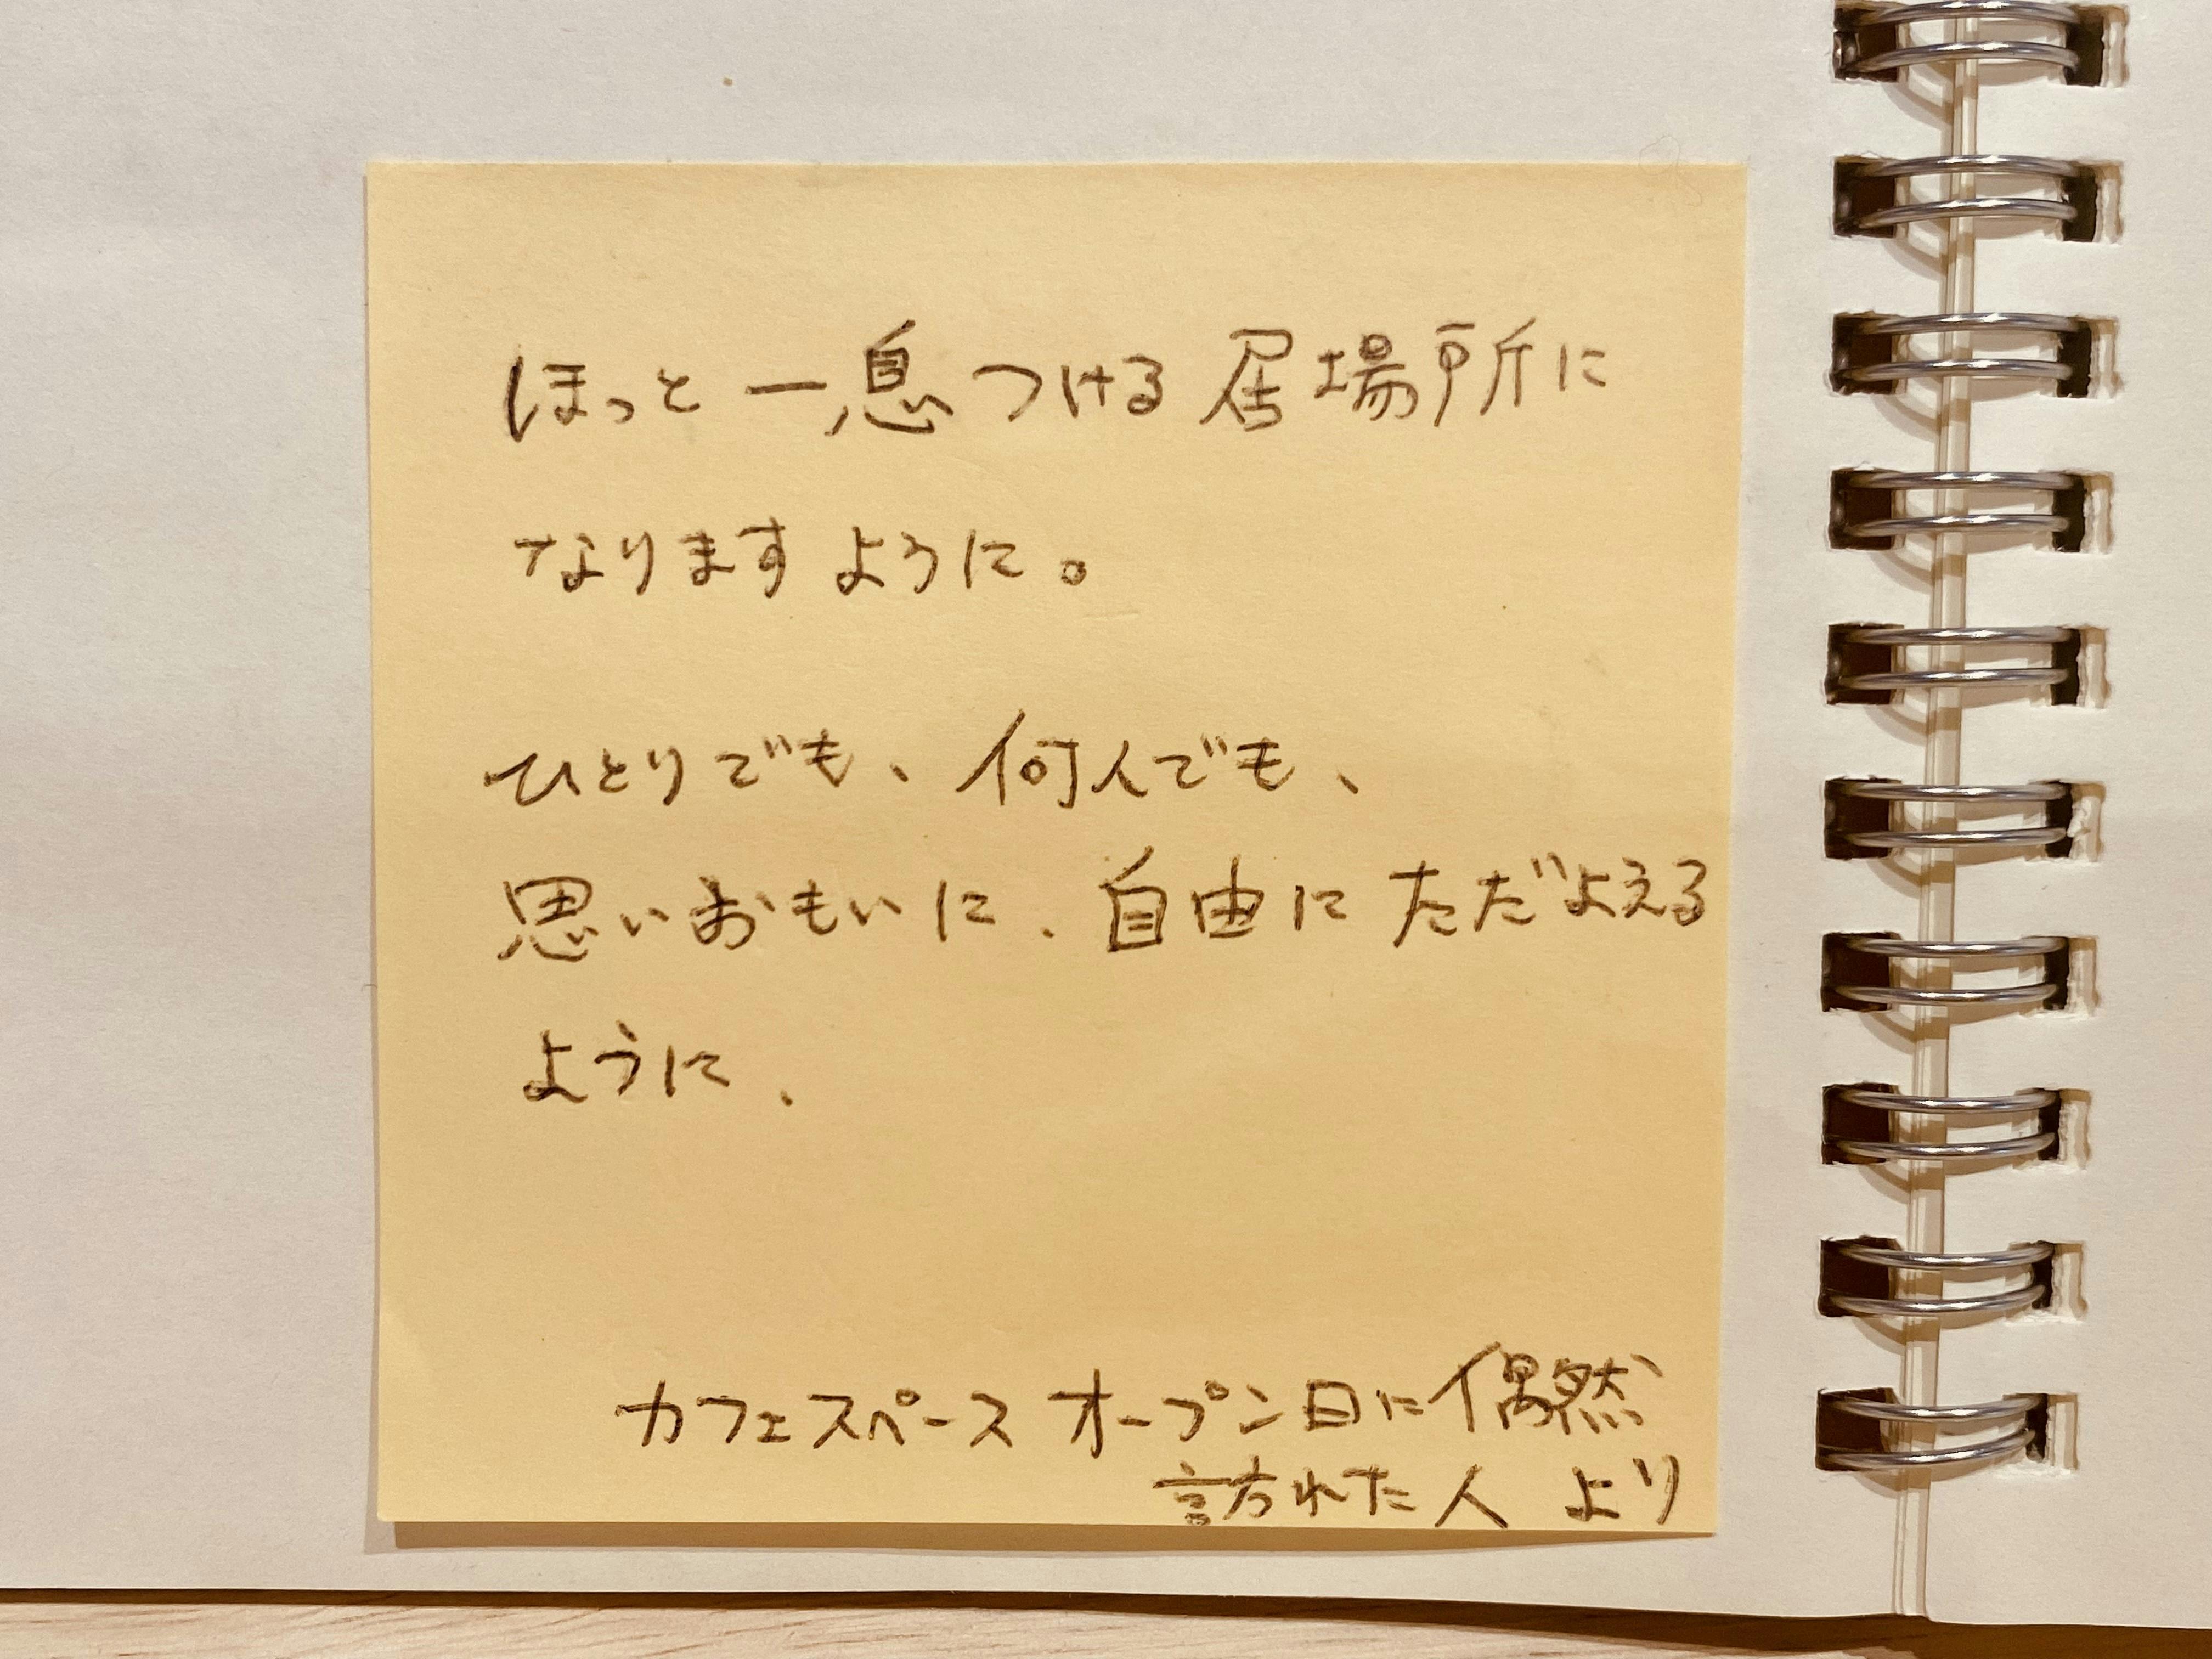 ほっと一息つける居場所に
なりますように。
ひとりでも、何人でも、
思いおもいに、自由にただよえる
ように、
カフェスペースオープン日に偶然
訪れた人より